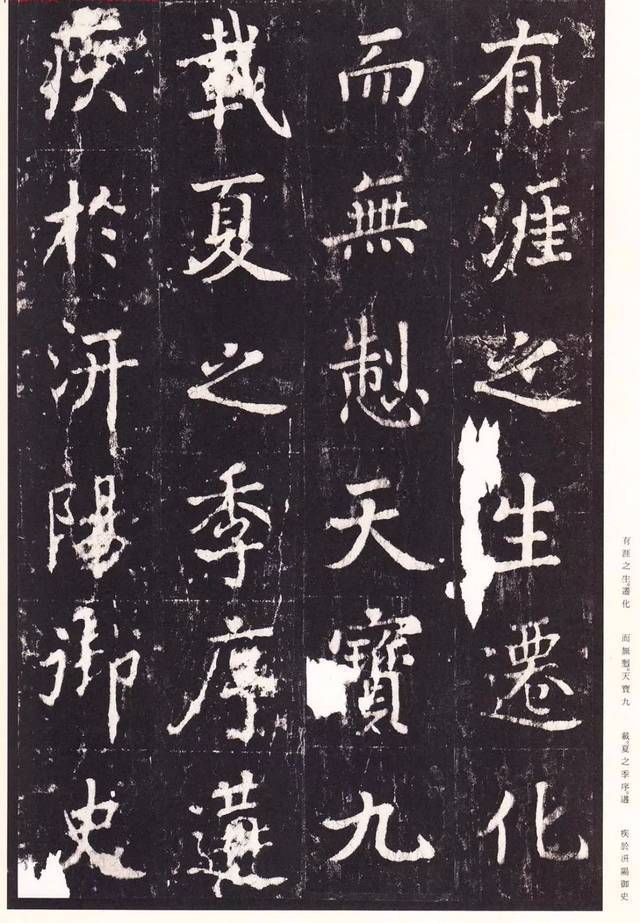 有涯之生遷化
而無天寶九
載夏之季序遘
疾於汧陽御史
有涯之生。遷化 而無。天寶九 載。夏之季序。遘 疾於汧陽御史